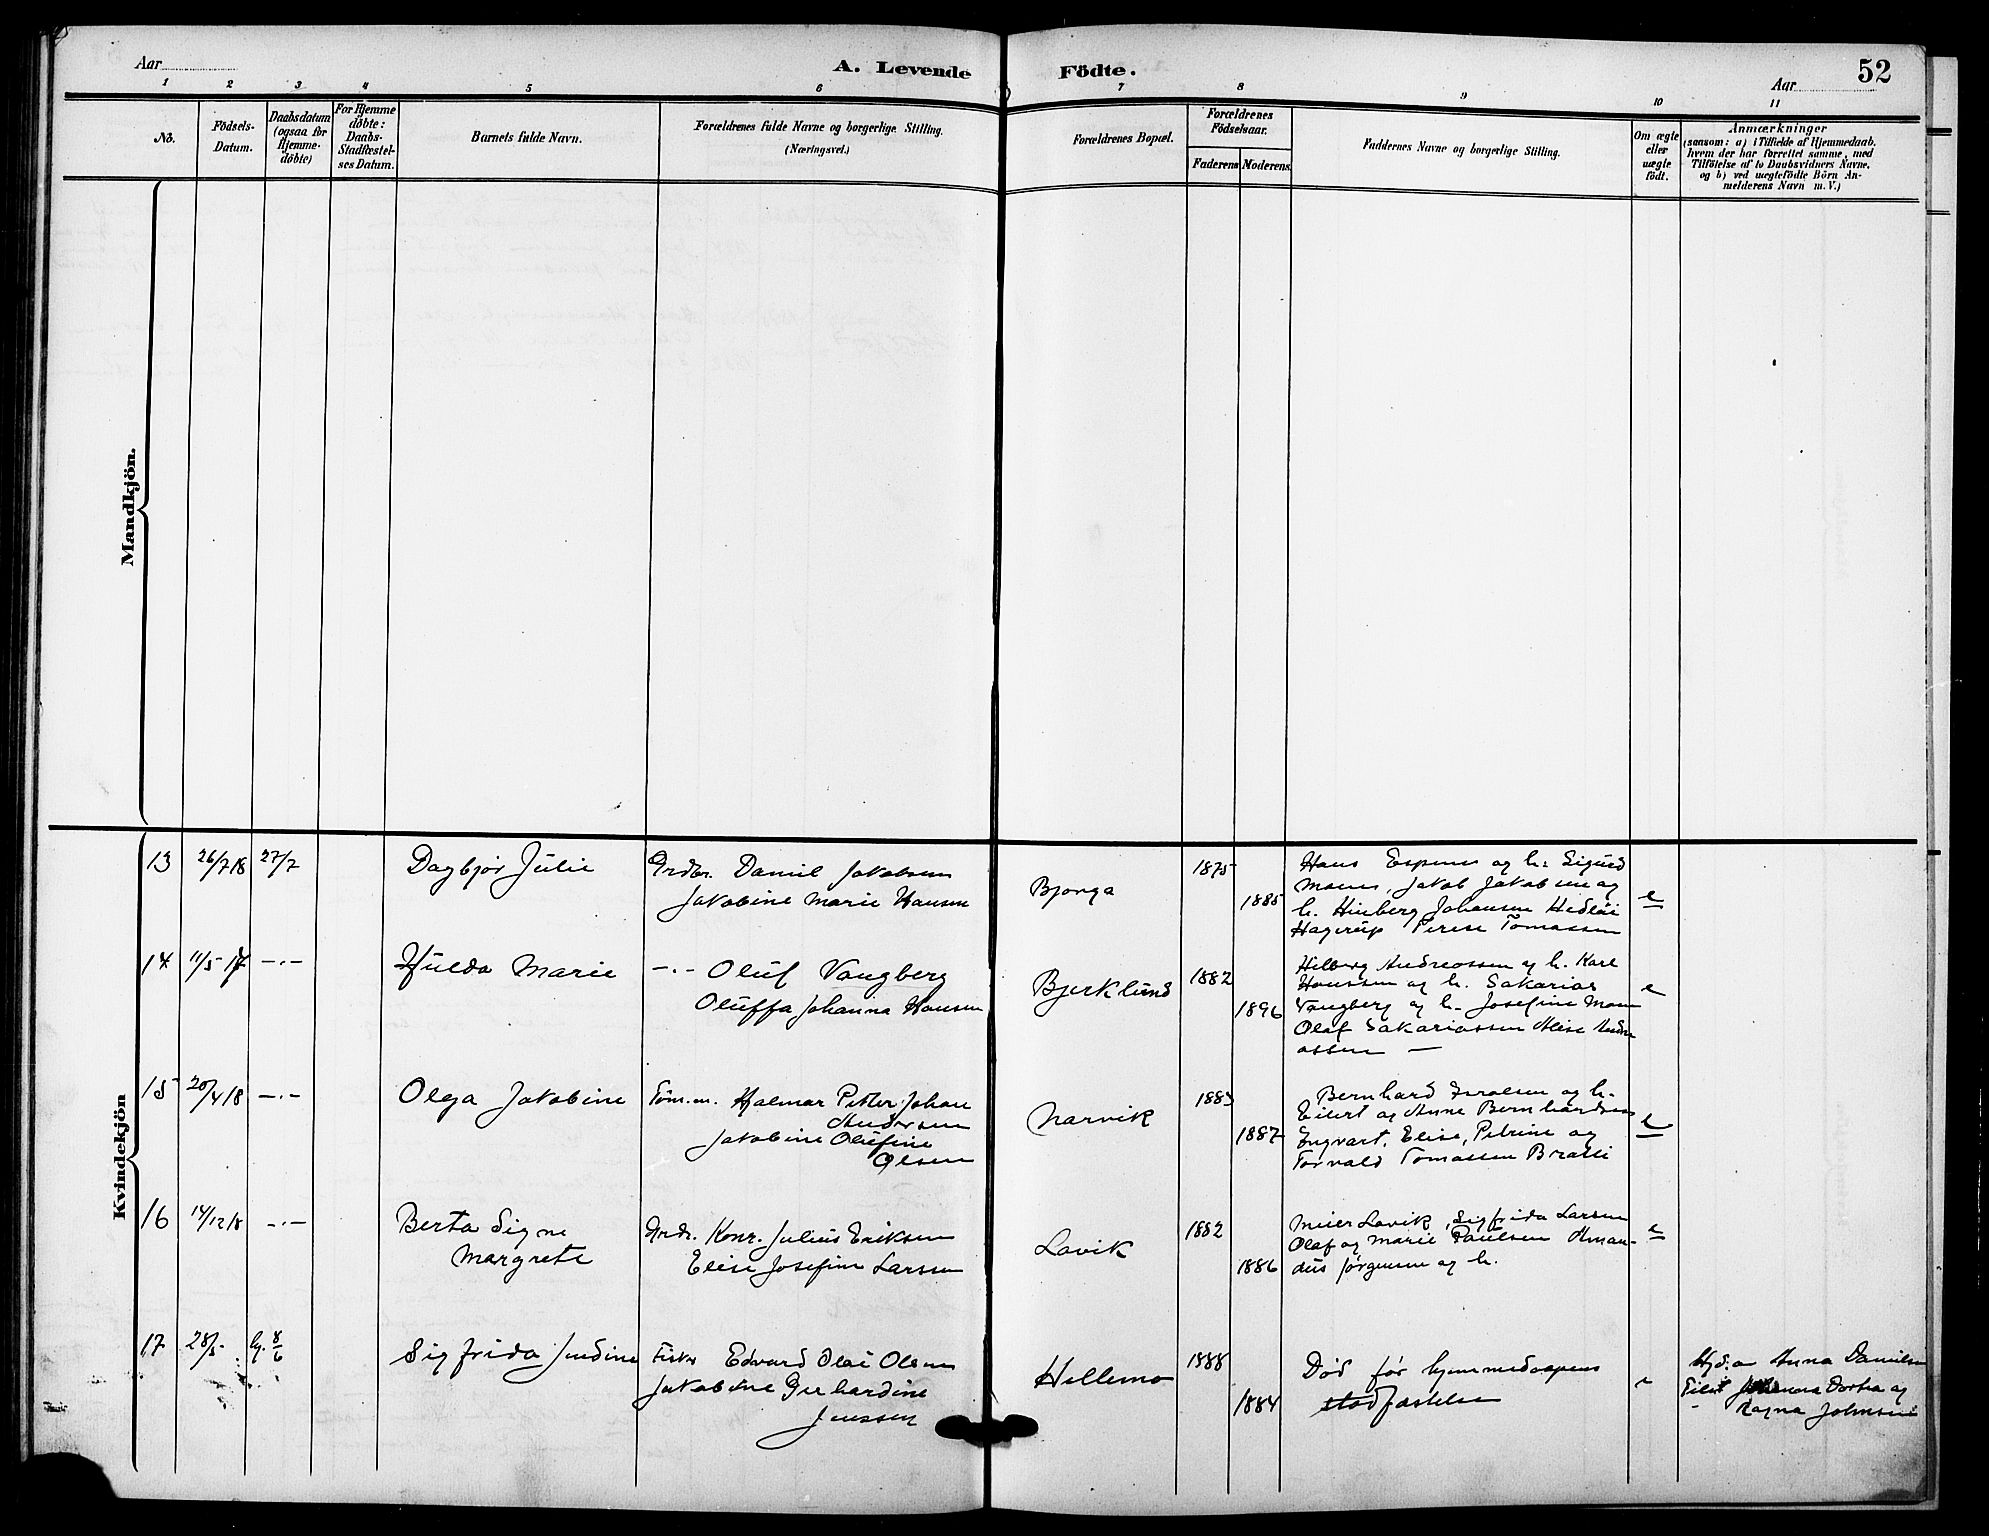 Aar
A. Levende Födte.
Aar
52
1 2 3 4 5 6 7 8 9 10 11
No.
Födsels-
Datum.
Daabsdatum
(ogsaa for
Hjemme-
døbte)
For Hjemme
døbte:
Daabs-
Stadfæstel-
ses Datum.
Barnets fulde Navn.
Forældrenes fulde Navne og borgerlige Stilling.
(Næringsvei.)
Forældrenes Bopæl.
Forældrenes
Födselsaar.
Faderens
Moderens.
Faddernes Navne og borgerlige Stilling.
Om ægte
eller
uægte
födt.
Anmærkninger
(saasom: a) i Tilfælde af Hjemmedaab.
hvem der har forrettet samme, med
Tilföielse af to Daabsvidners Navne.
og b) ved uægtefödte Börn An-
melderens Navn m. V.)
Mandkjön.
Kvindekjön
13 26/7 18 27/7
Dagbjør Julie
Grdbr. Daniel Jakobsen
Jakobine Marie Hansen
Bjorga
1875
1885
Hans Espenes og h. Sigurd
Moens, Jakob Jakobsen og
h. Hinberg Johansen
Hagerup Tomassen
e
14 11/5 17 -·-
Hulda Marie
-·- Oluf Vangberg
Oluffa Johanna Hansen
Bjerklund
1882
1896
Hilberg Andreassen og h. Karl
Hanssen og h. Sakarias
Vangberg og h. Josefine Moen
Olaf Sakariassen Alise Andre
assen —
e
15 20/4 18 -·-
Olga Jakobine
Töm.m. Halmar Petter Johan
Andersen
Jakobine Olufine
Olsen
Narvik
1883
1887
Bernhard Israelsen og h.
Eilert og Anne Bernhardsen
Engvart, Elise, Petrine og
Torvald Tomassen Bratli
e
16 14/12 18 -·-
Berta Signe
Margrete
Grdr. Konr. Julius Eriksen
Elise Josefine Larsen
Lavik
1882
1886
Meier Lavik, Sigfrida Larsen
Olaf og Marie Paulsen Aman-
dus Jørgensen og h.
e
17 28/5 hj. 8/6
Sigfrida Jendine
Fisker Edvard Olai Olsen
Jakobine Gerhardine
Jenssen
Hellemo
1888
1884
Død før hjemmedaapens
stadfæstelse
e
Hjd. av Anna Danielsen
Johanna Dortea og
Ragna Johnsen